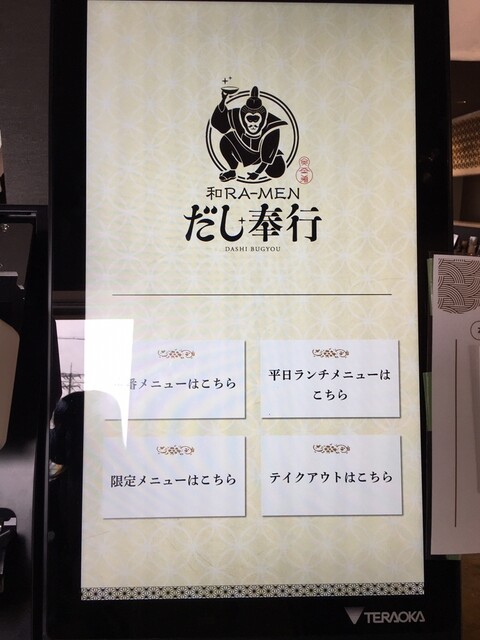 和RA-MEN
だし奉行
DASHI BUGYOU
番メニューはこちら
平日ランチメニューは
こちら
限定メニューはこちら
テイクアウトはこちら
TERAOKA